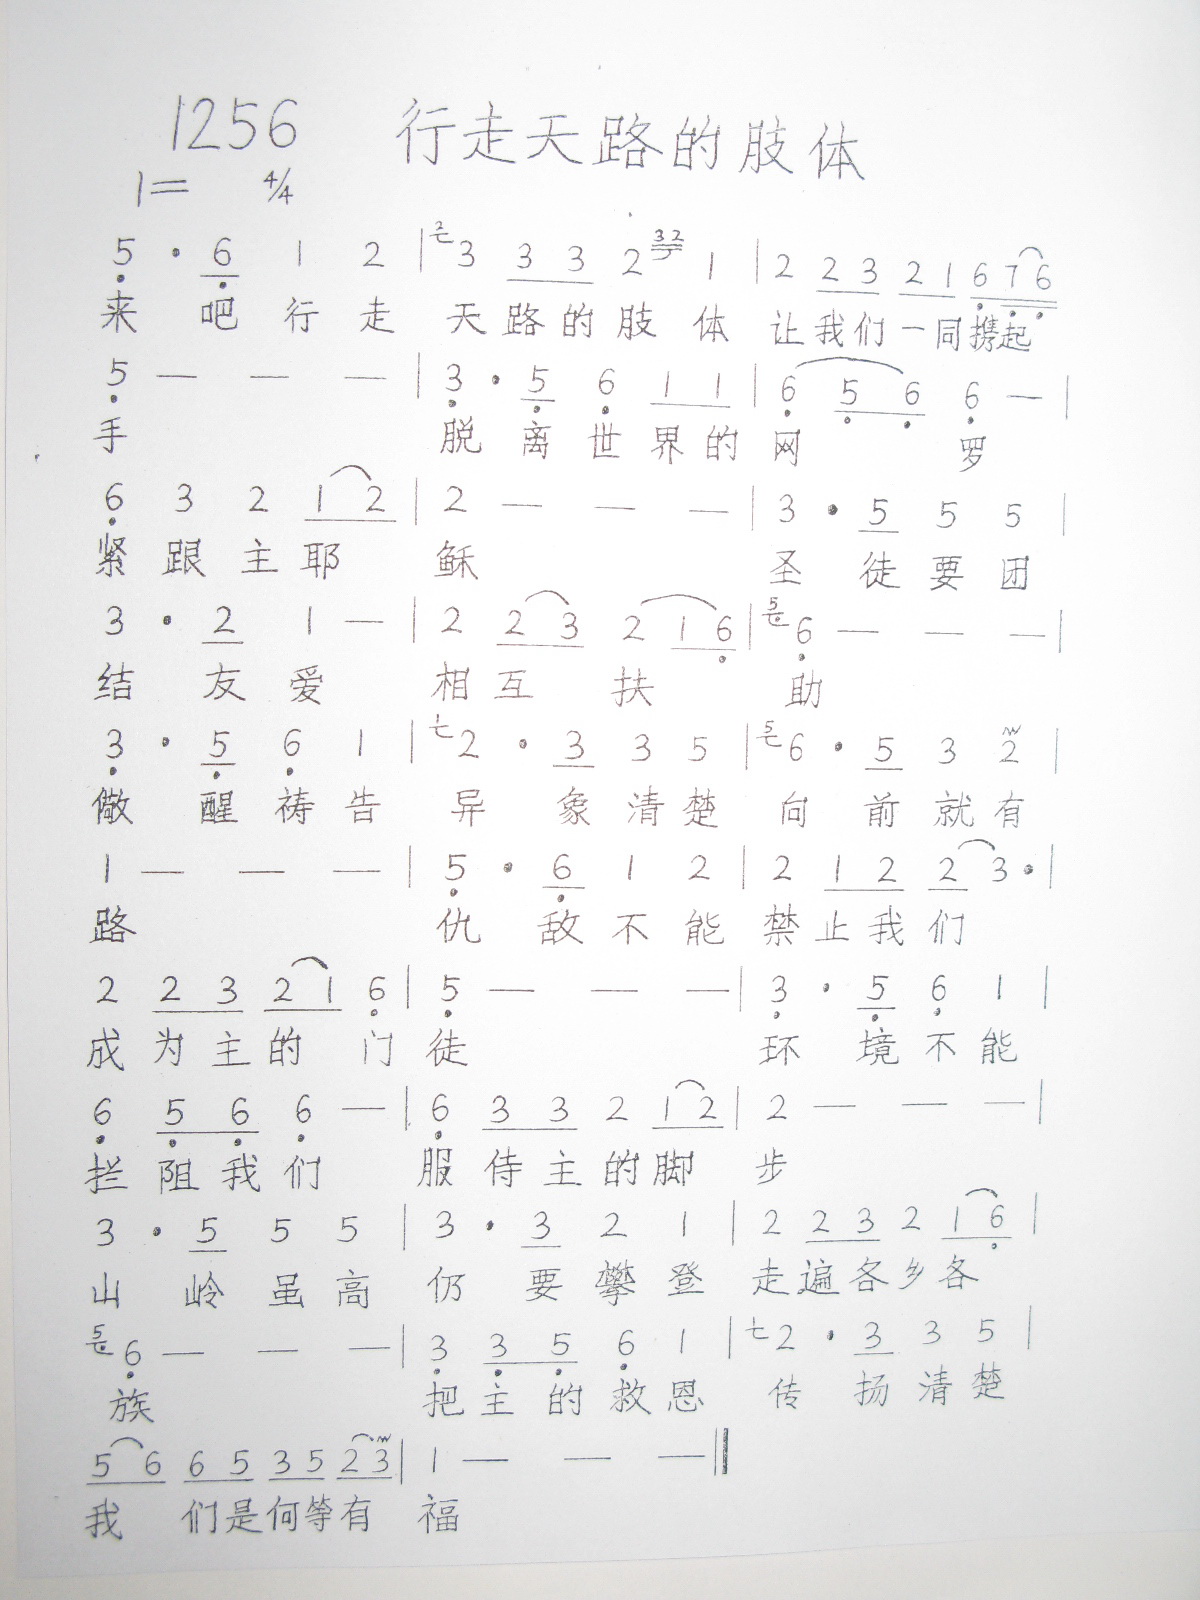 1256 行走天路的肢体
1= 4/4
5 · 6 1 2 | 3 3 3 2 32 1 | 2 2 3 2 1 6 7 6
来 吧 行 走 天 路 的 肢 体 让 我 们 一 同 携 起
5 — — — | 3 · 5 6 1 1 | 6 5 6 6 — |
手 脱 离 世 界 的 网 罗
6 3 2 1 2 | 2 — — — | 3 · 5 5 5 |
紧 跟 主 耶 稣 圣 徒 要 团
3 · 2 1 — | 2 2 3 2 1 6 | 5 6 — — — |
结 友 爱 相 互 扶 助
3 · 5 6 1 | 2 · 3 3 5 | 5 6 · 5 3 2 |
儆 醒 祷 告 异 象 清 楚 向 前 就 有
1 — — — | 5 · 6 1 2 | 2 1 2 2 3 · |
路 仇 敌 不 能 禁 止 我 们
2 2 3 2 1 6 | 5 — — — | 3 · 5 6 1 |
成 为 主 的 门 徒 环 境 不 能
6 5 6 6 — | 6 3 3 2 1 2 | 2 — — — |
拦 阻 我 们 服 侍 主 的 脚 步
3 · 5 5 5 | 3 · 3 2 1 | 2 2 3 2 1 6 |
山 岭 虽 高 仍 要 攀 登 走 遍 各 乡 各
5 6 — — — | 3 3 5 6 1 | 2 · 3 3 5 |
族 把 主 的 救 恩 传 扬 清 楚
5 6 6 5 3 5 2 3 | 1 — — — ‖
我 们 是 何 等 有 福